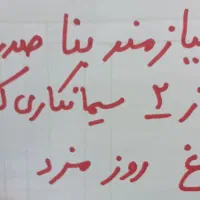 یازمند بنا صد
از ۲ سیمانکاری ک
غ روز مزد